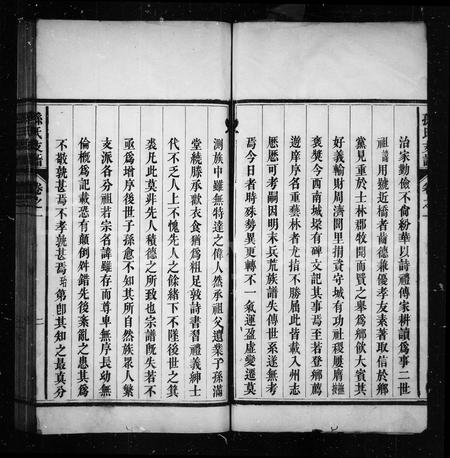 治家勤儉不尙紛華以詩禮傳家耕讀爲事二世
祖諱用號近橋者齒德兼優孝友素著取信於鄉
黨見重於士林郡牧聞而賢之舉爲鄉飲大賓其
好義輸財周濟閭里捐貲守城有功社稷屢膺
褒奬今西南城垜有碑文記其事焉至若登鄉薦
遊庠序名重藝林者尤指不勝屈此皆載入州志
歷歷可考嗣因明末兵荒族譜失傳世系遂無考
焉今日者時殊勢異更轉不一氣運盈虛變遷莫
測族中雖無特達之偉人然承祖父遺業子孫滿
堂繞膝承歡衣食猶爲粗足敦詩書習禮義紳士
代不乏人上不愧先人之餘緒下不墜後世之箕
裘凡此莫非先人積德之所致也宗譜旣失若不
亟爲增序後世子孫愈不知其所自然族衆人繁
支派各分祖若宗名諱雖存而尊卑無序長幼無
倫槪爲記載恐有顛倒舛錯先後紊亂之患其爲
不敬孰甚焉不孝孰甚焉 第卽其知之最眞分
孫氏支譜 卷之一